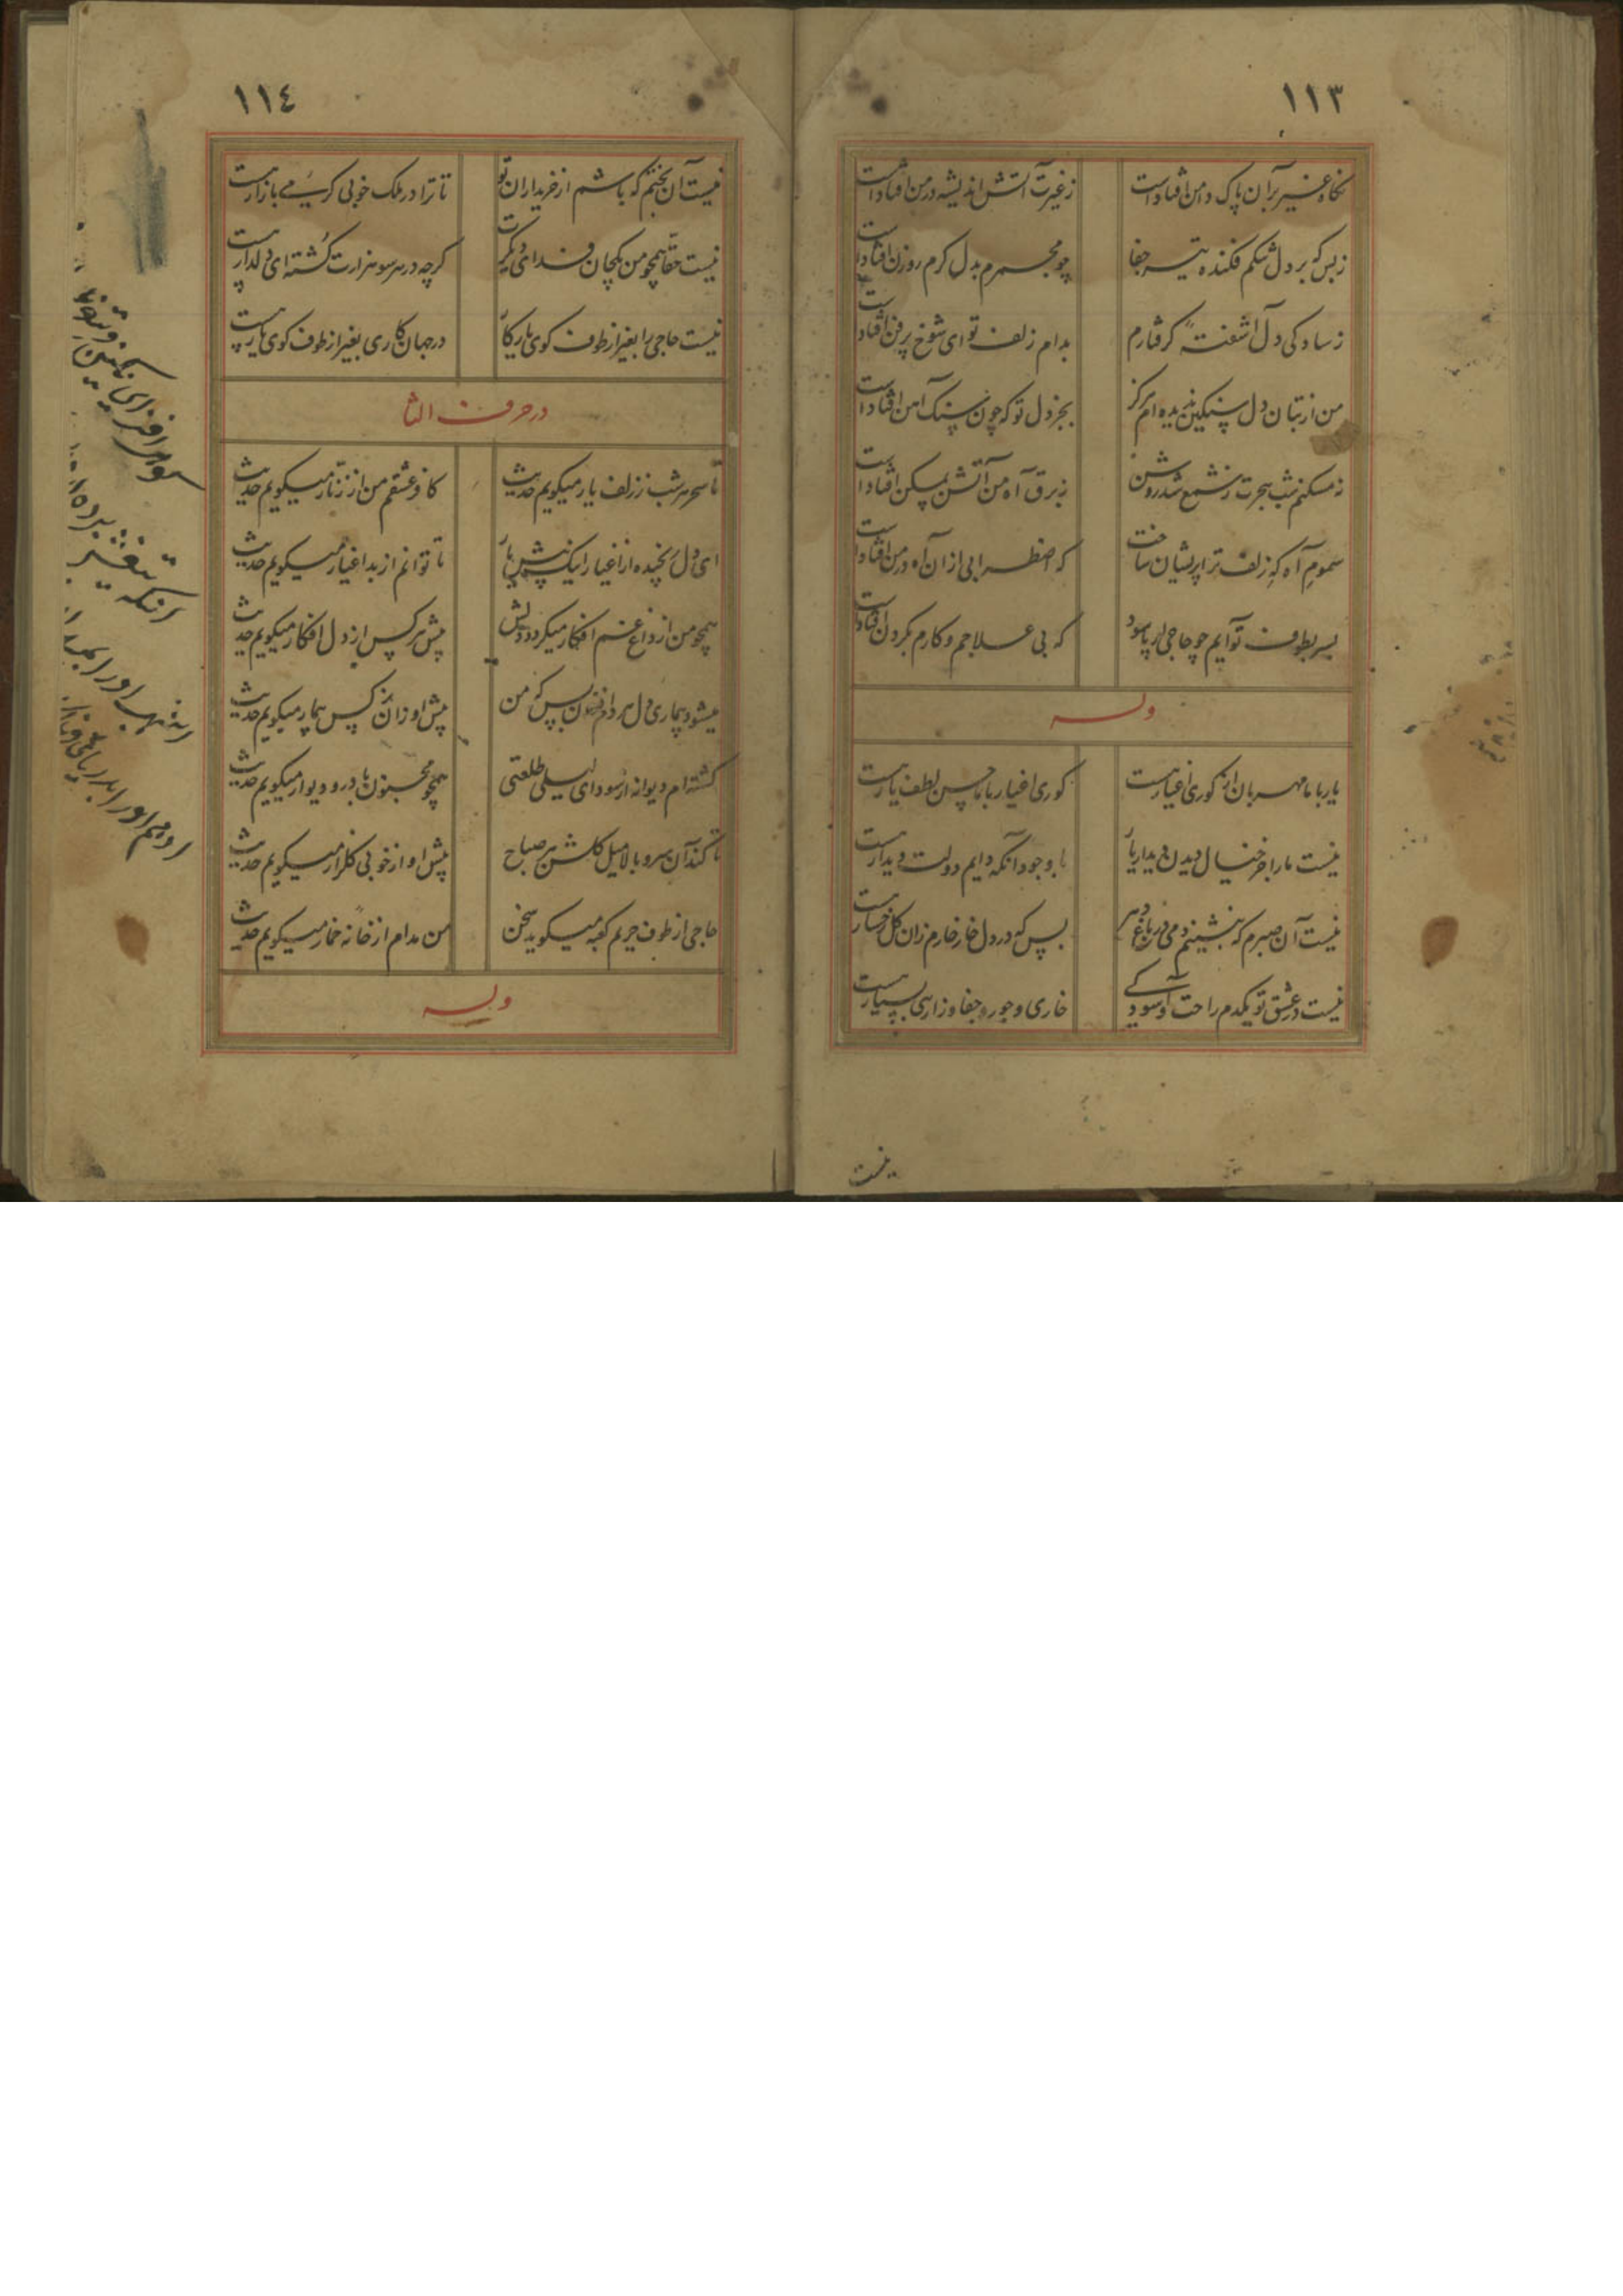 ١١٣
نکاه غیر بر آن پاک دامن افتادست
ز غیرت آتش اندیشه در من افتادست
ز بس که بر دل تنکم فکنده تیر جفا
چو مجمرم بدل کرم روزن افتادست
ز سادکی دل آشفته کرفتارم
بدام زلف تو ای شوخ پرفن افتادست
من از بتان دل سنکین ندیده ام هرکز
بجز دل تو که چون سنک آهن افتادست
ز برق آه من آتش بمسکن افتادست
سموم آه که زلف ترا پریشان ساخت
که اضطرابی از ان آه در من افتادست
بسر بطوف تو آیم چو حاجی ار پاسود
که بی علاجم و کارم بکردن افتادست
وله
یار با ما مهربان از کوری اغیار هست
کوری اغیار با ما چسن لطف یار هست
نیست ما را جز خیال دیدن دیدار یار
با وجود آنکه دایم دولت دیدار هست
نیست آن صبرم که بنشینم دمی در باغ دهر
بس که در دل خار خارم زان کل رخسار هست
نیست در عشق تو یکدم راحت و آسودکی
خاری و جور و جفا و زاری بسیار هست
نیست
١١٤
نیست آن بختم که باشم از خریداران تو
تا ترا در ملک خوبی کرمی بازار هست
نیست حقا همچو من یکجان فدای دیکرت
کرچه در هر سو هزارت کشته ای دلدار هست
نیست حاجی را بغیر از طوف کوی یار کار
در جهان کاری بغیر از طوف کوی یار هست
در حرف الثا
تا سحر هر شب ز زلف یار میکویم حدیث
کافر عشقم من از زنار میکویم حدیث
ای دل رنجیده از اغیار لیک پیش یار
تا توانم از بد اغیار میکویم حدیث
همچو من از داغ غم افکار میکردد دلش
پیش هر کس از دل افکار میکویم حدیث
میشود بیماری دل هر دم افزون بس که من
پیش او زان نرکس بیمار میکویم حدیث
کشته ام دیوانه از سودای لیلی طلعتی
همچو مجنون با در و دیوار میکویم حدیث
تا کند آن سرو بالا میل کلشن هر صباح
پیش او از خوبی کلزار میکویم حدیث
حاجی از طوف حریم کعبه میکوید سخن
من مدام از خانه خمار میکویم حدیث
وله